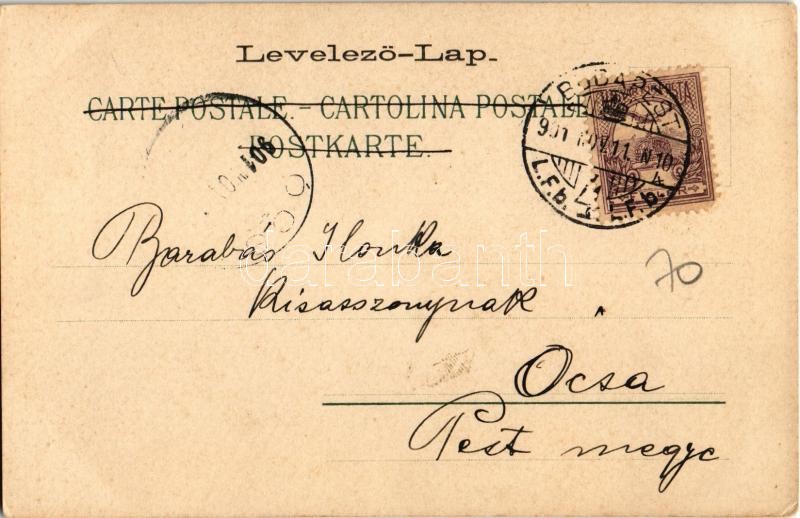 Levelező-Lap.
CARTE POSTALE. – CARTOLINA POSTALE
POSTKARTE.
BUDAPEST
901 NOV. 11. N 10
L.F.b. L.F.b.
Barabás Ilonka
Kisasszonynak
Ocsa
Pest megye
70
darabanth